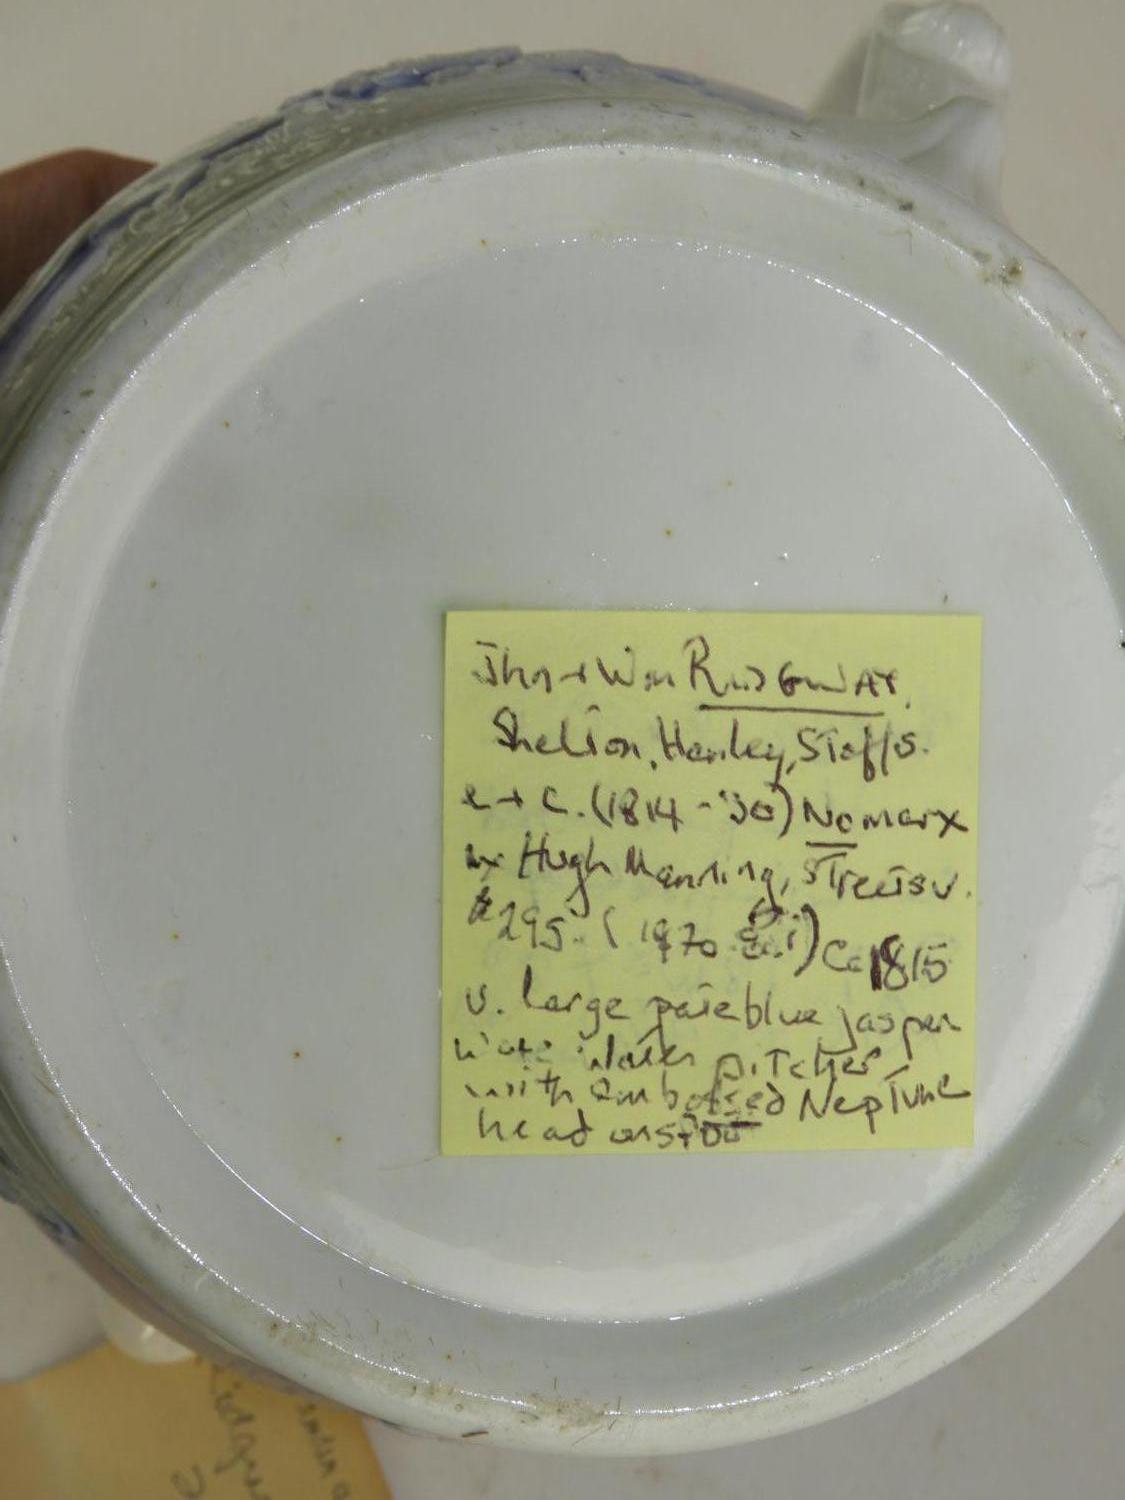 Jhn + Wm RIDGWAY.
Shelton, Hanley, Staffs.
e + c. (1814 - '30) No mark
Hugh Manning, Streetsv.
$295. (1970 ) Ca 1815
v. large pale blue jasper
ware water pitcher
with embossed Neptune
head on spout